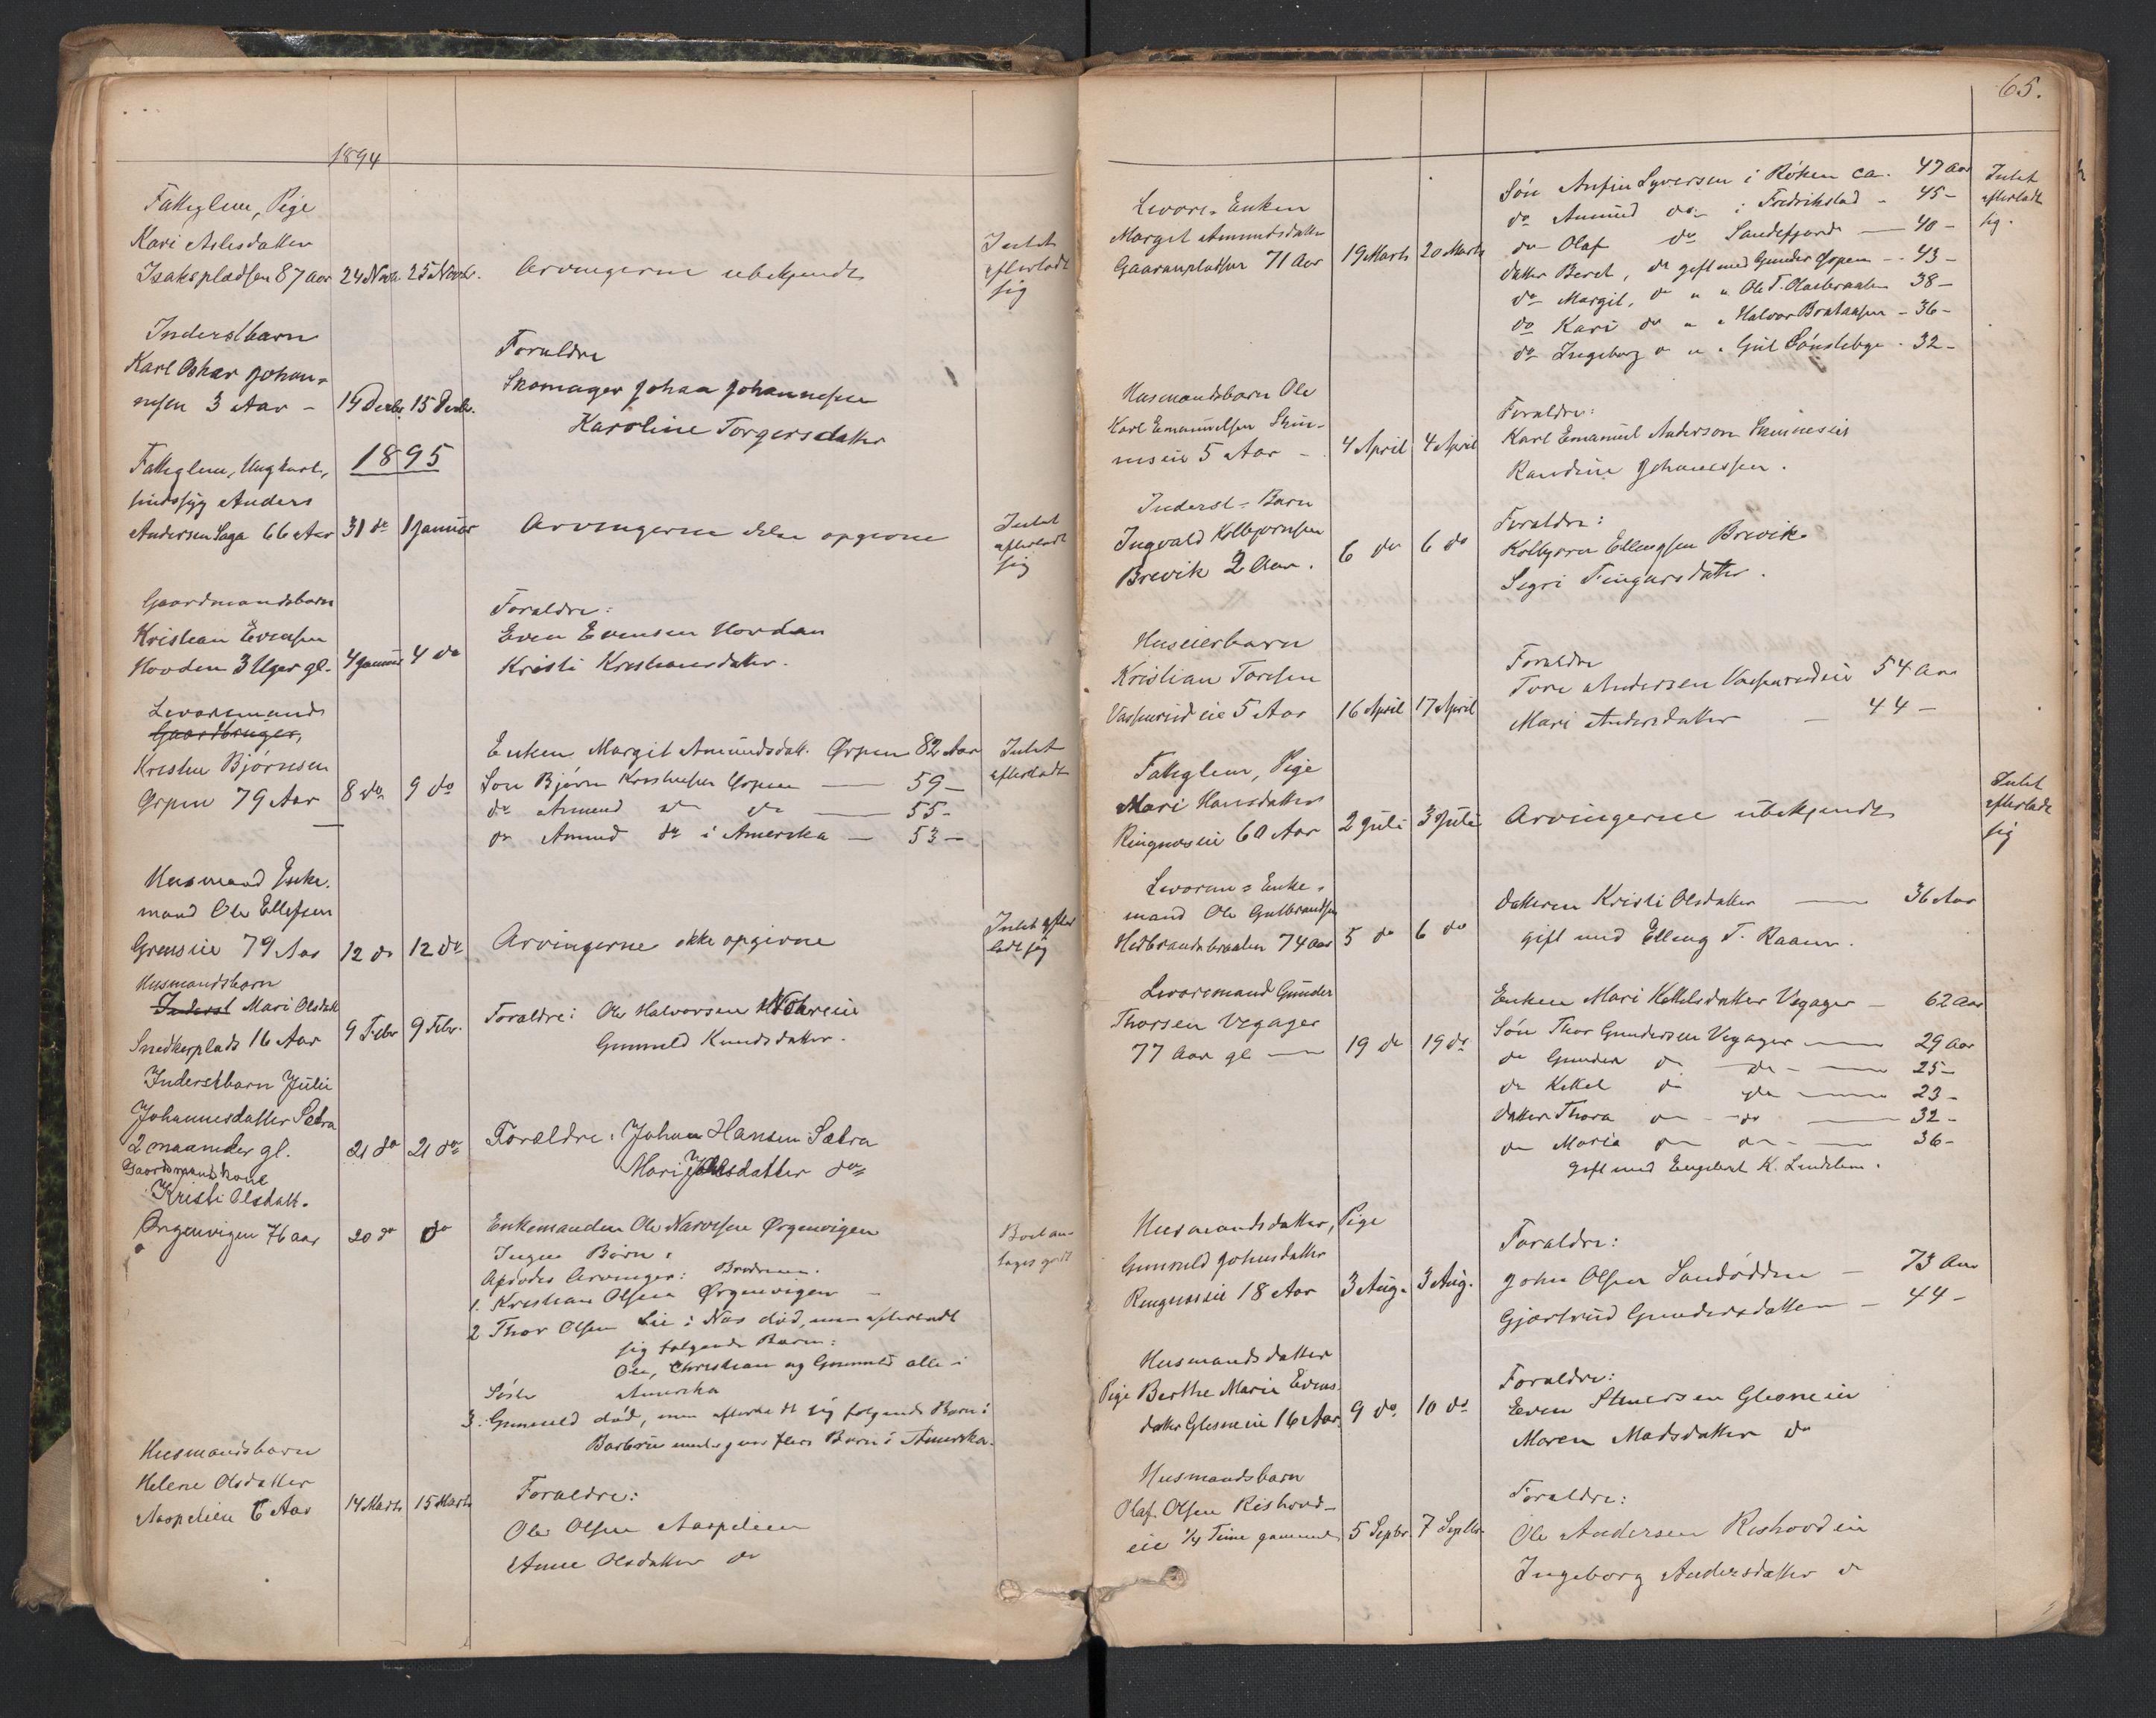 1894
Fattiglem, Pige
Kari Aslesdatter
Isakspladsen 87 Aar 24 Novbr. 25 Novbr. Arvingerne ubekjendt
Intet
efterladt
sig
Inderstbarn
Karl Oskar Johan-
nesen 3 Aar - 14 Decbr. 15 Decbr.
Forældre
Skomager Johan Johannesen
Karoline Torgersdatter
1895
Fattiglem, Ungkarl,
sindssyg Anders
Andersen Saga 66 Aar 31 do 1 Januar Arvingerne ikke opgivne
Intet
efterladt
sig
Gaardmandsbarn
Kristian Evensen
Hovden 3 Uger gl. 4 Januar 4 do
Forældre:
Even Evensen Hovden
Kristi Kristiansdatter.
Livøremand
Gaardbruger,
Kristen Bjørnsen
Ørpen 79 Aar 8 do 9 do
Enken Margit Amundsdatt. Ørpen 82 Aar
Søn Bjørn Kristensen Ørpen — 59 -
do Amund do do — 55 -
do Amund do i Amerika — 53 -
Intet
efterladt
Husmand Enke-
mand Ole Ellefsen
Grensie 79 Aar 12 do 12 do Arvingerne ikke opgivne
Intet efter
ladt sig
Husmandsbarn
Inderst Mari Olsdatt
Snedkerplads 16 Aar 9 Febr 9 Febr.
Forældre: Ole Halvorsen
Gunnild Knudsdatter.
Inderstbarn Julie
Johannesdatter Sætra
2 maaneder gl. 21 do 21 do
Forældre: Johan Hansen Sætra
Mari do
Gaardmandskone
Kristi Olsdatt.
Ørgenvigen 76 aar 20 do do
Enkemanden Ole Narvesen Ørgenvigen
Ingen Børn.
Afdødes Arvinger: Brødrene.
1. Kristian Olsen Ørgenvigen
2 Thor Olsen Lie i Næs død, men efterladt
sig følgende Børn:
Ole, Christian og Gunnild alle i
Amerika
Søster
3. Gunnild død, men efterladt sig følgende Børn:
Barbro med flere Børn i Amerika.
Boet an-
tages godt
Husmandsbarn
Helene Olsdatter
Aaspelien 6 Aar 14 Marts 15 Marts
Forældre:
Ole Olsen Aaspelien
Anne Olsdatter do
65.
Livøre-Enken
Margit Amundsdatter
Gaaranpladsen 71 Aar 19 Marts 20 Marts
Søn Anfin Syversen i Røken ca. 47 Aar
do Amund do i Fredrikstad - 45 -
do Olaf do Sandefjord — 40 -
datter Beret, do gift med Gunder Ørpen - 43 -
do Margit, do " " Ole T. Olasbraaten 38 -
do Kari do " " Halvor Brataasen - 36 -
do Ingeborg do " " 32 -
Intet
efterladt
sig.
Husmandsbarn Ole
Karl Emanuelsen Skin-
neseie 5 Aar - 4 April 4 April
Forældre:
Karl Emanuel Anderson Skinneseie
Randine Johannessen.
Inderst-Barn
Ingvald Kolbjørnsen
Brevik 2 Aar. 6 do 6 do
Forældre:
Kolbjørn Ellingsen Brevik
Sigri Fingarsdatter.
Huseierbarn
Kristian Toresen
Vassenrudeie 5 Aar 16 April 17 April
Forældre
Tore Andersen Vassenrudeie 54 Aar
Mari Andersdatter — 44 -
Fattiglem, Pige
Mari Hansdatter
Ringneseie 60 Aar 2 Juli 3 Juli Arvingerne ubekjendt
Intet
efterladt
sig
Livøre-Enke-
mand Ole Gulbrandsen
Hidbrandsbraaten 74 Aar 5 do 6 do
Datteren Kristi Olsdatter — 36 Aar
gift med Elling T. Raaen.
Livøremand Gunder
Thorsen Vegager
77 Aar gl — 19 do 19 do
Enken Mari Kittelsdatter Vegager — 62 Aar
Søn Thor Gundersen Vegager — 29 Aar
do Gunder do do — 25 -
do Kittel do do — 23 -
datter Thora do do — 32 -
do Maria do do — 36 -
gift med Engebret K. Lindelien.
Husmandsdatter, Pige
Gunnild Johnsdatter
Ringneseie 18 Aar 3 Aug. 3 Aug.
Forældre:
John Olsen Sandødden — 73 Aar
Gjertrud Gundersdatter — 44 -
Husmandsdatter
Pige Berthe Marie Evens-
datter Glesneeie 16 Aar. 9 do. 10 do
Forældre:
Even Steversen Glesneeie
Maren Madsdatter do
Husmandsbarn
Olaf Olsen Rishovd-
eie ¼ Time gammel 5 Septbr. 7 Septbr.
Forældre:
Ole Andersen Rishovdeie
Ingeborg Andersdatter do